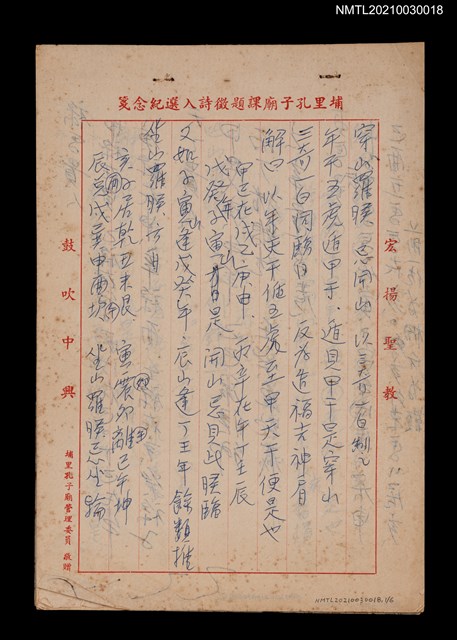 NMTL20210030018
埔里孔子廟課題徵詩入選紀念箋
宏揚聖教
穿山羅睺忌開山以三奇一白制
年干五虎遁甲干遁見甲干是穿山
三奇一白同臨反為造福吉神
解曰以年天干值五處至甲天干便是也
甲己在戌乙庚申 丙辛在午丁壬辰
戊癸年寅山是 開山忌見此睺臨
又如子寅山逢戊癸年辰山逢丁壬年餘類推
坐山羅睺六
亥子居乾丑未艮 寅卯離巳午坤
辰戌巽申酉坎 坐山羅睺忌坐論
鼓吹中興
埔里孔子廟管理委員 敬贈
NMTL20210030018.1/6